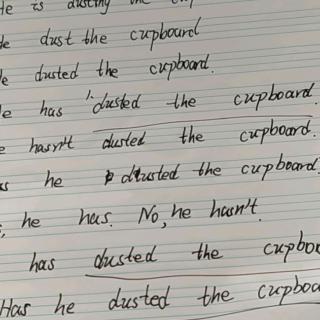 He is dusting the cup
He dust the cupboard
He dusted the cupboard.
He has dusted the cupboard.
He hasn't dusted the cupboard.
as he dusted the cupboard
, he has. No, he hasn't.
has dusted the cupboa
Has he dusted the cupboa